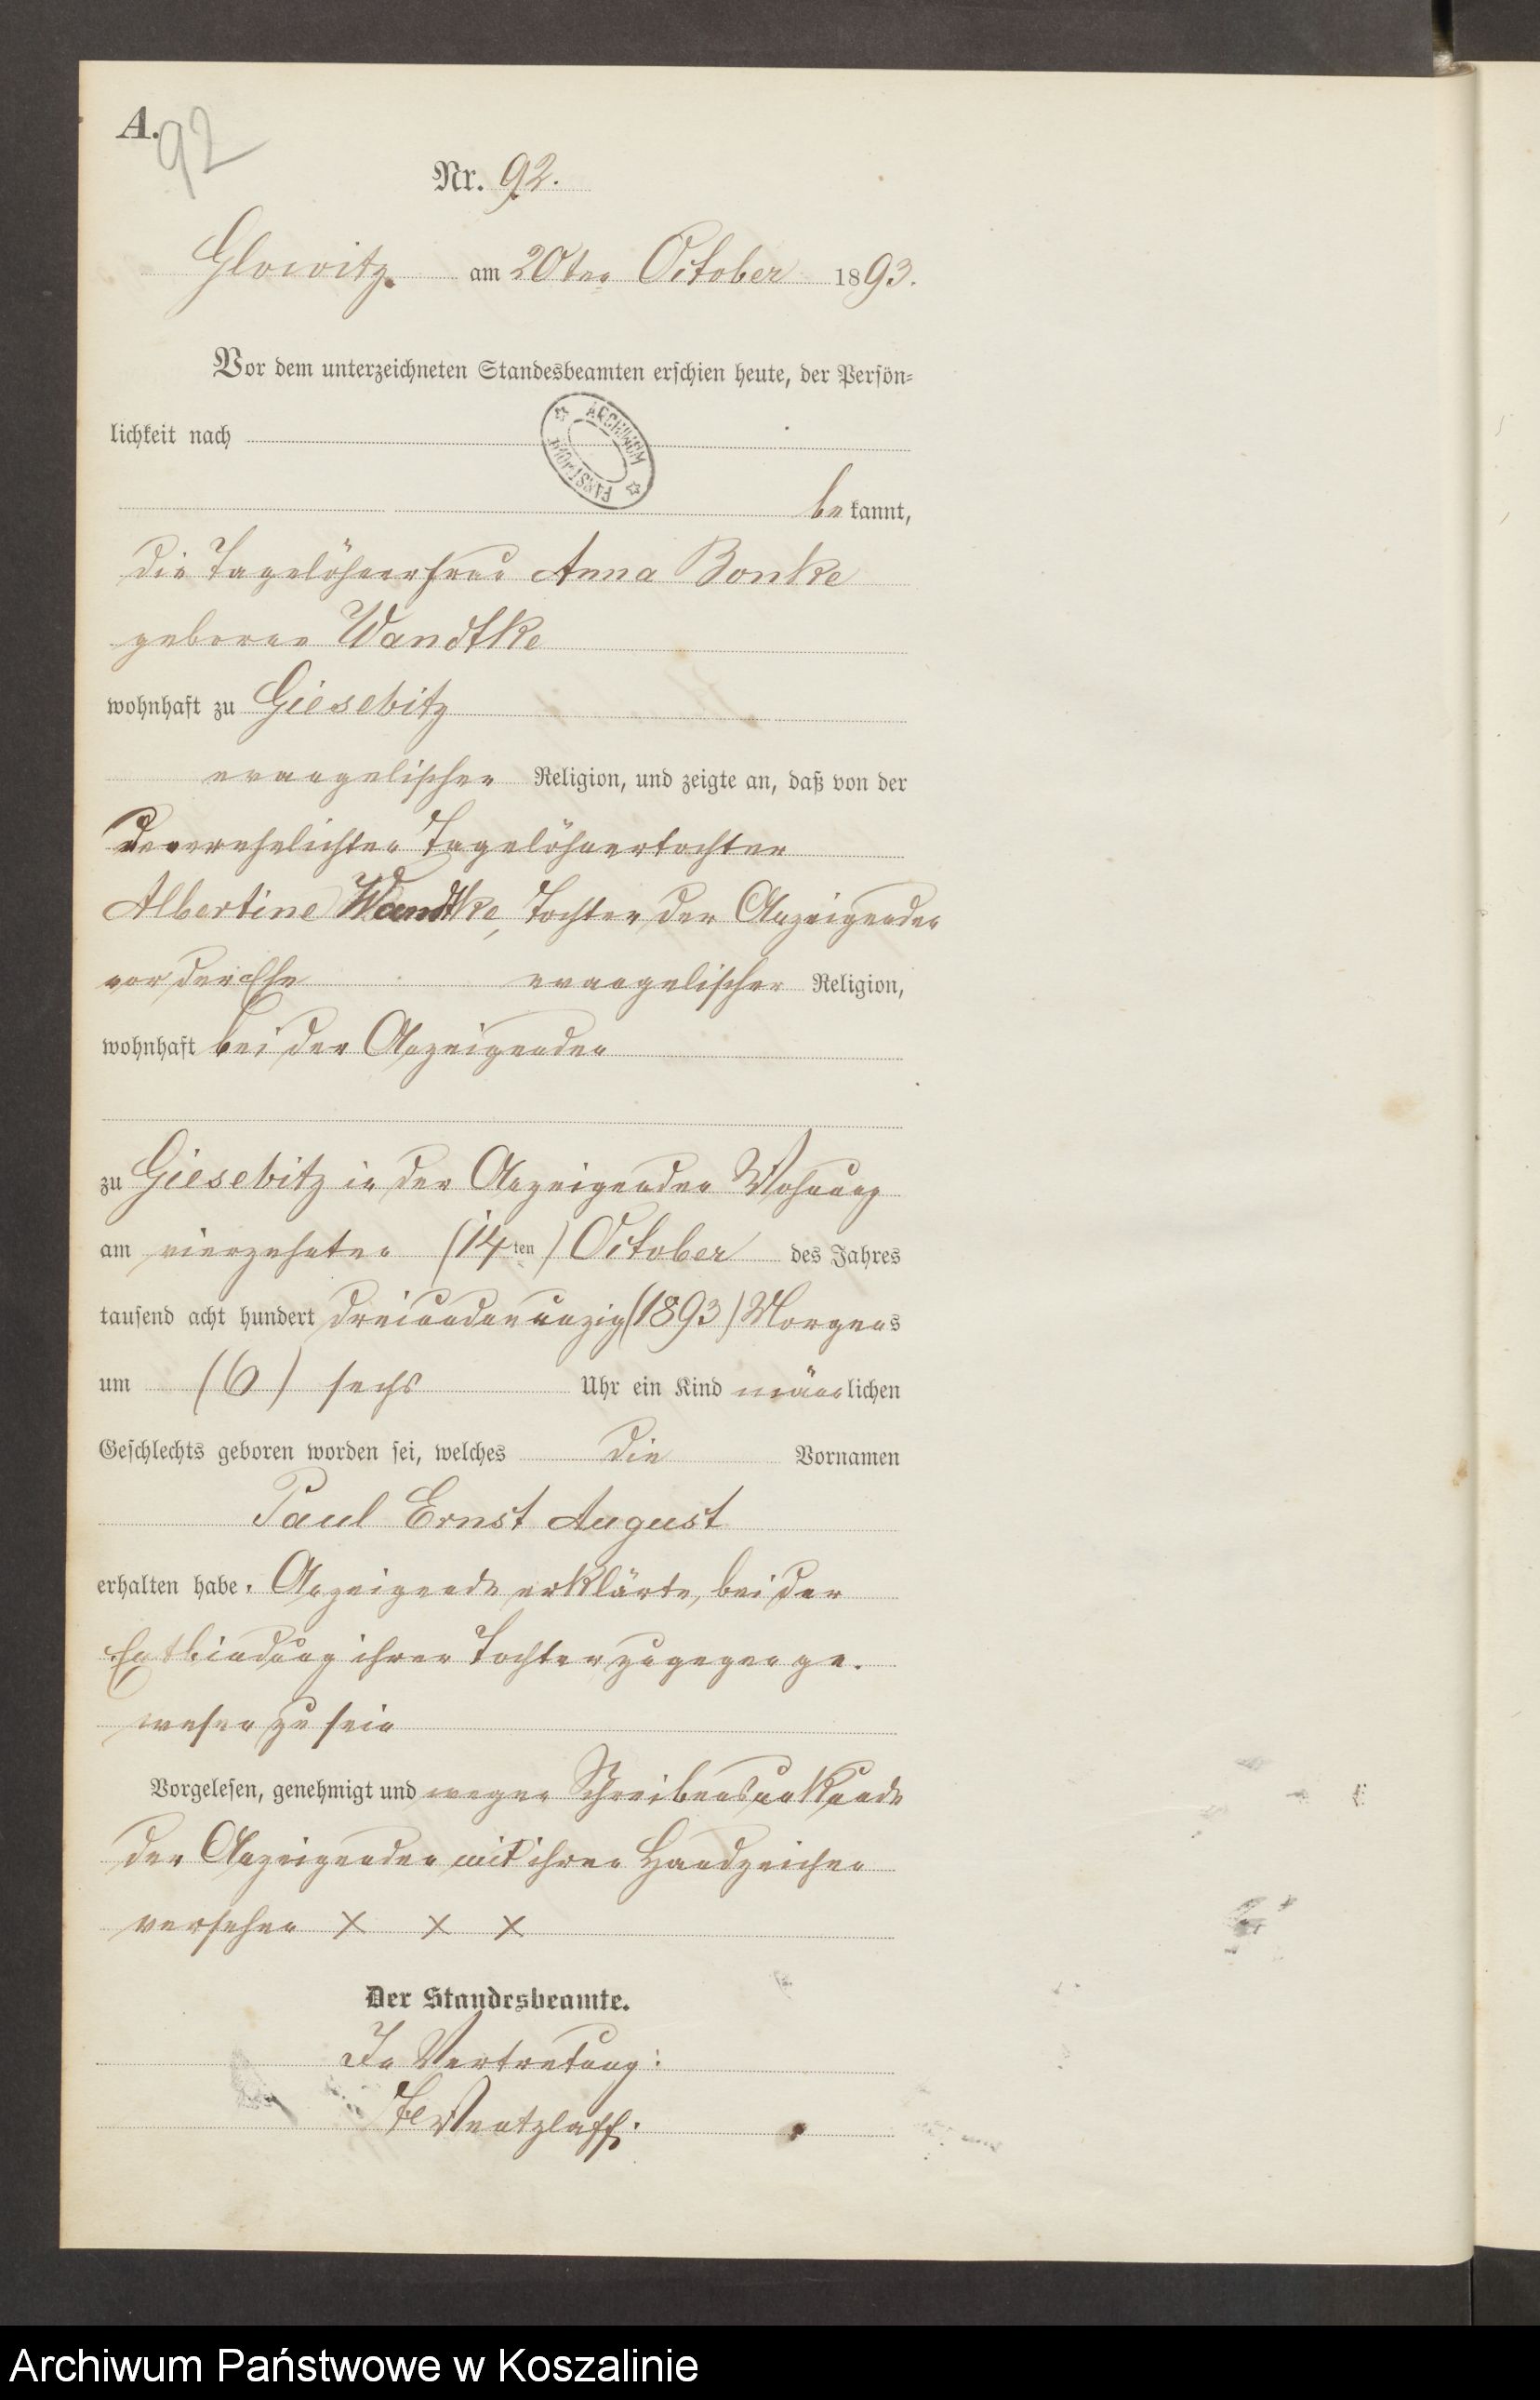 A.
92
Nr. 92.
Glowitz. am 20ten October 1893.
Vor dem unterzeichneten Standesbeamten erschien heute, der Persön-
lichkeit nach
ARCHIWUM PAŃSTWOWE
be kannt,
die Tagelöhnerfrau Anna Bonke
geborne Wandtke
wohnhaft zu Giesebitz
evangelischer Religion, und zeigte an, daß von der
unverehelichten Tagelöhnertochter
Albertine Wandtke, Tochter der Anzeigenden
vor der Ehe evangelischer Religion,
wohnhaft bei der Anzeigenden
zu Giesebitz in der Anzeigenden Wohnung
am vierzehnten (14ten) October des Jahres
tausend acht hundert dreiundneunzig (1893) Morgens
um (6) sechs Uhr ein Kind männlichen
Geschlechts geboren worden sei, welches die Vornamen
Paul Ernst August
erhalten habe. Anzeigende erklärte, bei der
Entbindung ihrer Tochter zugegen ge-
wesen zu sein
Vorgelesen, genehmigt und wegen Schreibensunkunde
der Anzeigenden mit ihren Handzeichen
versehen X X X
Der Standesbeamte.
In Vertretung:
Wentzlaff.
Archiwum Państwowe w Koszalinie